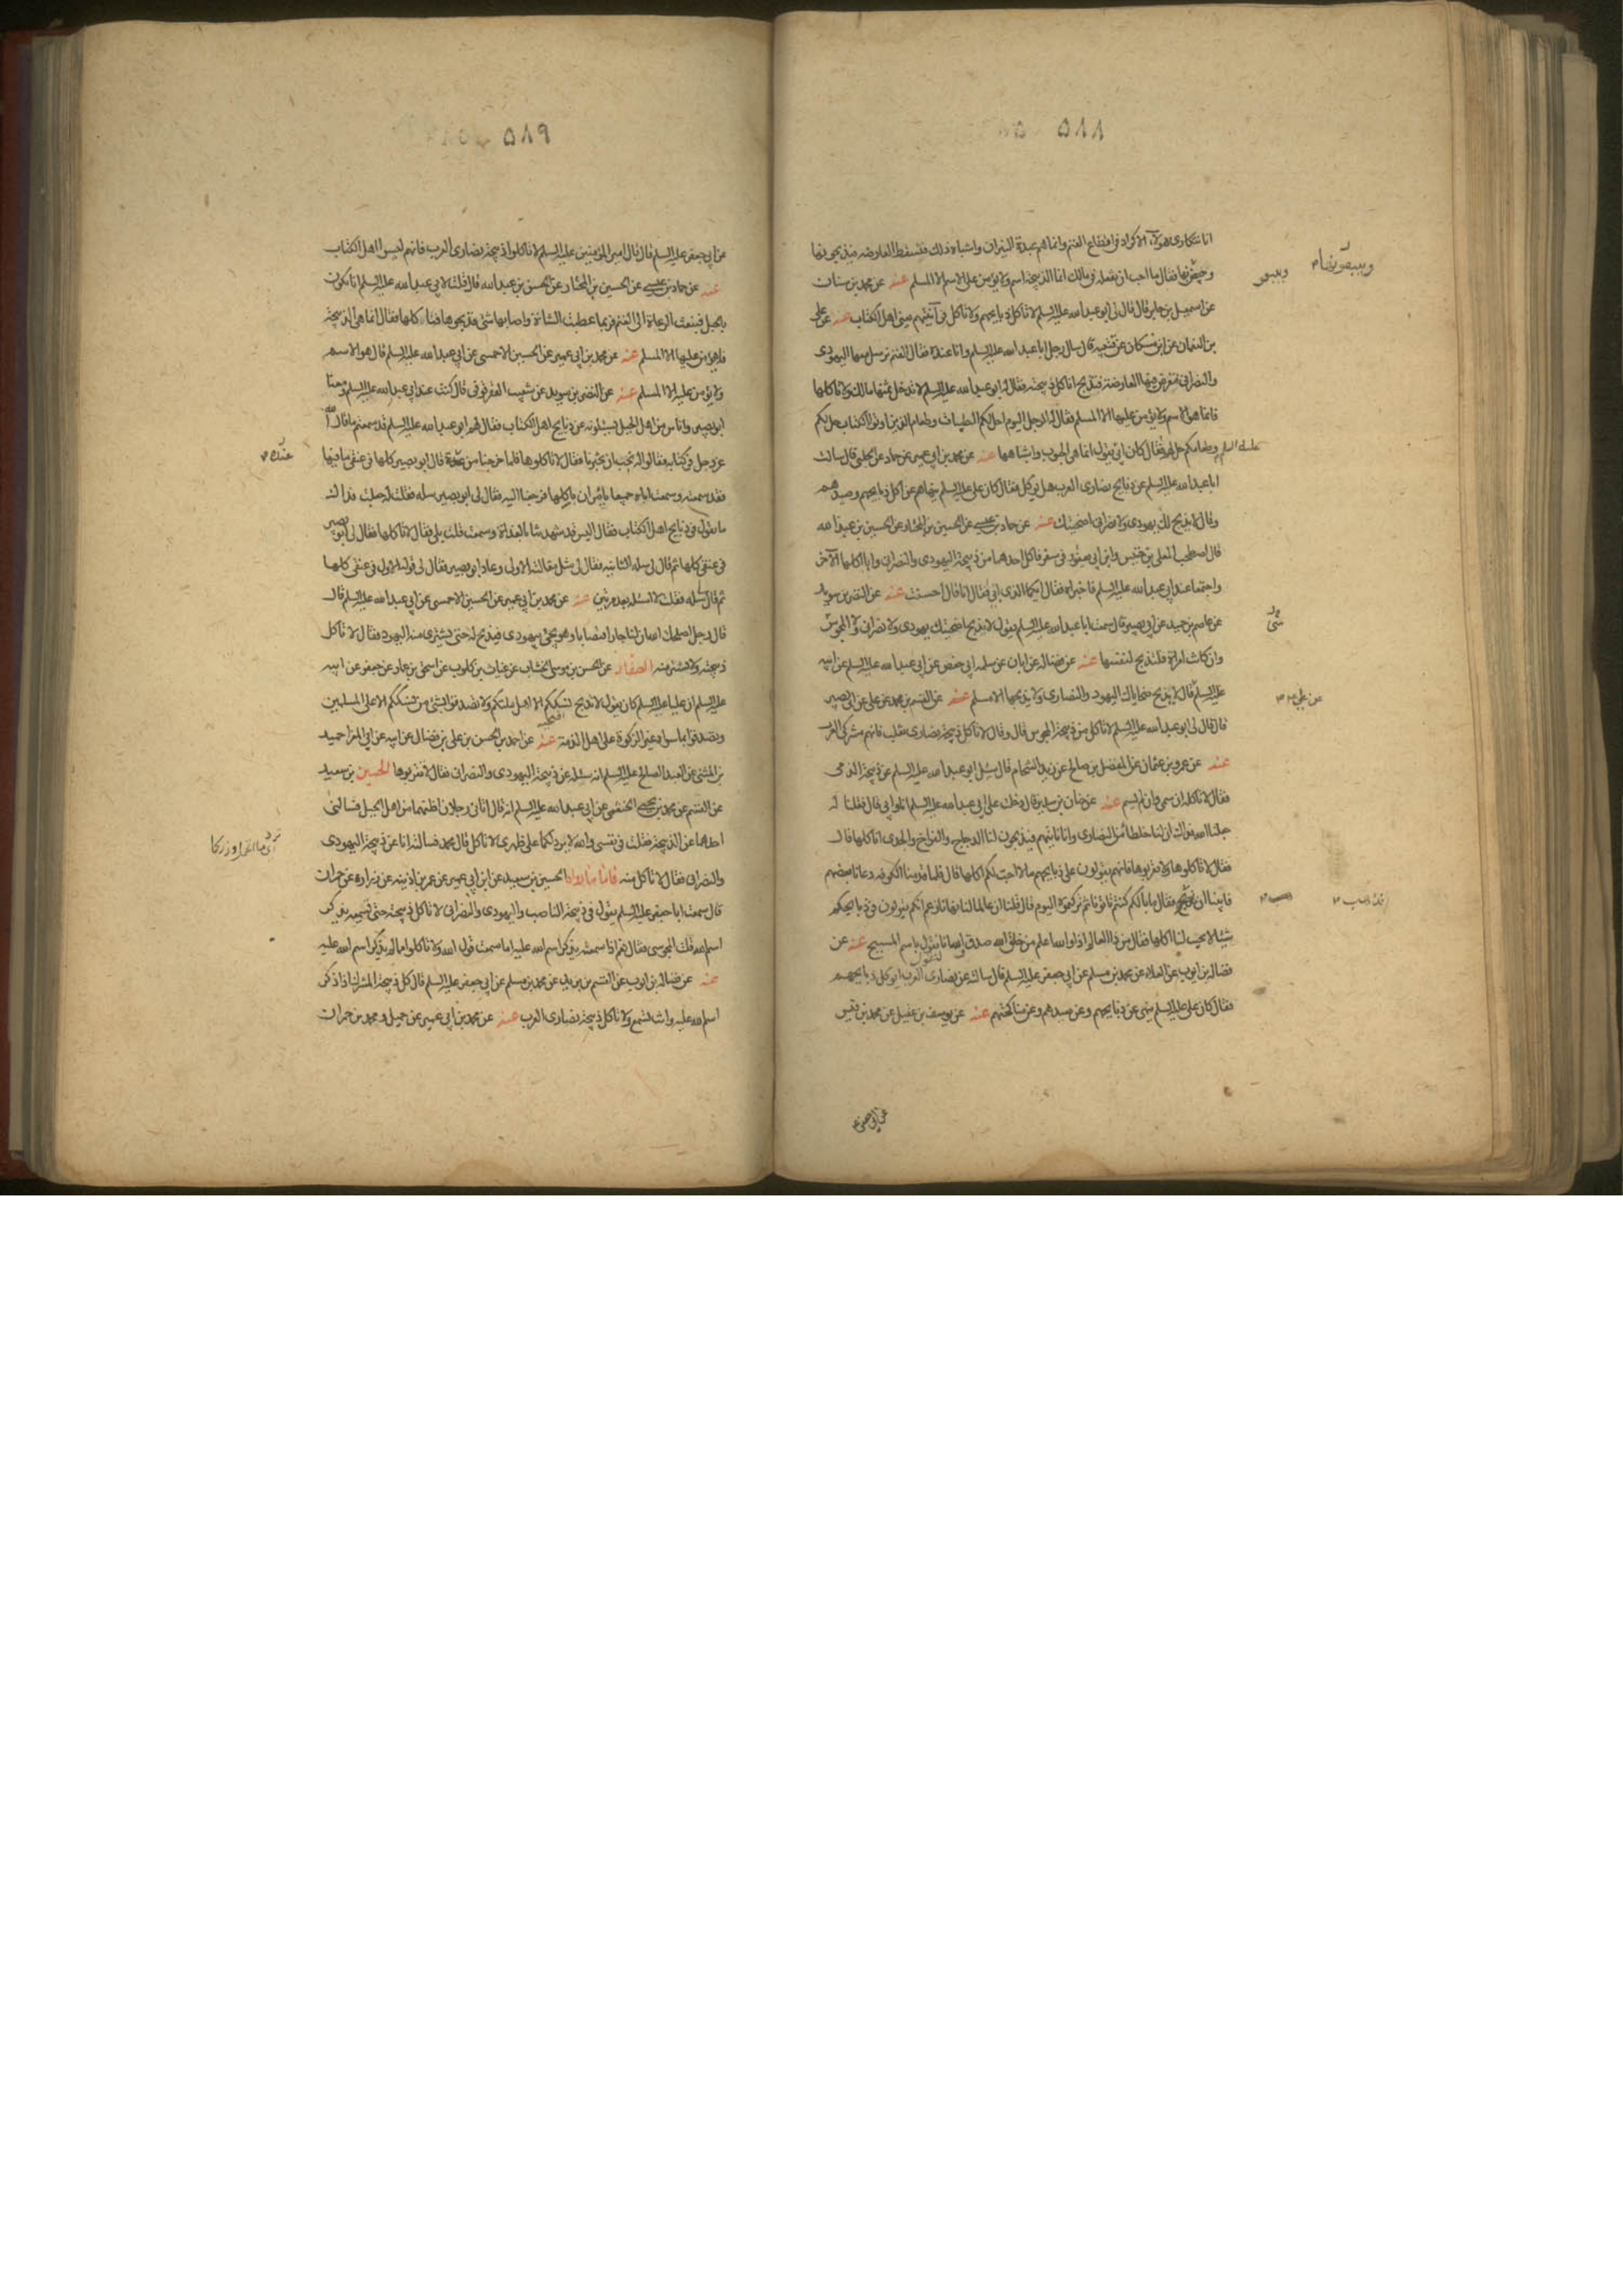 ٥٨٨
انا نتكارى هؤلاء الاكراد في اقطاع الغنم وانما هم عبدة النيران واشباه ذلك فتسقط العارضة فيذبحونها
ويبيعونها فقال ما احب ان تفعله في مالك انما الذبيحة اسم ولا يؤمن على الاسم الا المسلم عنه عن محمد بن سنان
عن اسمعيل بن جابر قال قال لي ابو عبد الله عليه السلم لا تاكل ذبايحهم ولا تاكل في آنيتهم يعني اهل الكتاب عنه عن علي
بن النعمان عن ابن مسكان عن قتيبة قال سال رجل ابا عبد الله عليه السلم وانا عنده فقال الغنم نرسل فيها اليهودي
والنصراني فتعرض فيها العارضة فتذبح اناكل ذبيحته فقال له ابو عبد الله عليه السلم لا تدخل ثمنها مالك ولا تاكلها
فانما هو الاسم ولا يؤمن عليها الا المسلم فقال له الرجل اليوم احل لكم الطيبات وطعام الذين اوتوا الكتاب حل لكم
وطعامكم حل لهم فقال كان ابي يقول انما هي الحبوب واشباهها عنه عن محمد بن ابي عمير عن حماد عن الحلبي قال سالت
ابا عبد الله عليه السلم عن ذبايح نصارى العرب هل تؤكل فقال كان علي عليه السلم ينهاهم عن اكل ذبايحهم وصيدهم
وقال لا يذبح لك يهودي ولا نصراني اضحيتك عنه عن حماد بن عيسى عن الحسين بن المختار عن الحسين بن عبد الله
قال اصطحب المعلى بن خنيس وابن ابي يعفور في سفر فاكل احدهما من ذبيحة اليهودي والنصراني وابا اكلها الآخر
واجتمعا عند ابي عبد الله عليه السلم فاخبراه فقال ايكما الذي ابى فقال انا قال احسنت عنه عن النضر بن سويد
عن عاصم بن حميد عن ابي بصير قال سمعت ابا عبد الله عليه السلم يقول لا يذبح اضحيتك يهودي ولا نصراني ولا المجوس
وان كانت امراة فلتذبح لنفسها عنه عن فضالة عن ابان عن سلمة ابي حفص عن ابي عبد الله عليه السلم عن ابيه
عليه السلم قال لا يذبح ضحاياك اليهود والنصارى ولا يذبحها الا مسلم عنه عن القسم بن محمد عن علي عن ابي بصير
قال قال لي ابو عبد الله عليه السلم لا تاكل من ذبيحة المجوس قال وقال لا تاكل ذبيحة نصارى تغلب فانهم مشركي العرب
عنه عن عمرو بن عثمان عن المفضل بن صالح عن زيد الشحام قال سئل ابو عبد الله عليه السلم عن ذبيحة الذمي
فقال لا تاكله ان سمى وان لم يسم عنه عن حنان بن سدير قال دخلت على ابي عبد الله عليه السلم انا وابي قال فقلنا له
جعلنا الله فداك ان لنا خلطاء من النصارى وانا ناتيهم فيذبحون لنا الدجاج والفراخ والجدي اناكلها قال
فقال لا تاكلوها ولا تقربوها فانهم يقولون على ذبايحهم ما لا احب لكم اكلها قال فلما قدمنا الكوفة دعانا بعضهم
فابينا ان نذبح فقال ما بالكم كنتم تاتونا ثم تركتموه اليوم قال قلنا ان عالما لنا نهانا زعم انكم تقولون في ذبايحكم
شيئا لا يحب لنا اكلها فقال من ذا العالم اذا والله اعلم من خلق الله صدق والله انا نقول باسم المسيح عنه عن
فضالة بن ايوب عن العلاء عن محمد بن مسلم عن ابي جعفر عليه السلم قال سالته عن نصارى العرب اتؤكل ذبايحهم
فقال كان علي عليه السلم ينهى عن ذبايحهم وعن صيدهم وعن مناكحتهم عنه عن يوسف بن عقيل عن محمد بن قيس
عن ابي جعفر
ويبيعونها
عليه السلم
عن علي
٥٨٩
عن ابي جعفر عليه السلم قال قال امير المؤمنين عليه السلم لا تاكلوا ذبيحة نصارى العرب فانهم ليسوا اهل الكتاب
عنه عن حماد بن عيسى عن الحسين بن المختار عن الحسين بن عبد الله قال قلت لابي عبد الله عليه السلم انا نكون
بالجبل فيبعث الرعاة الى الغنم فربما عطبت الشاة واصابها شيء فذبحوها فناكلها فقال انما هي الذبيحة
فلا يؤمن عليها الا المسلم عنه عن محمد بن ابي عمير عن الحسين الاحمسي عن ابي عبد الله عليه السلم قال هو الاسم
ولا يؤمن عليه الا المسلم عنه عن النضر بن سويد عن شعيب العقرقوفي قال كنت عند ابي عبد الله عليه السلم ومعنا
ابو بصير واناس من اهل الجبل يسئلونه عن ذبايح اهل الكتاب فقال لهم ابو عبد الله عليه السلم قد سمعتم ما قال الله
عز وجل في كتابه فقالوا له نحب ان تخبرنا فقال لا تاكلوها فلما خرجنا من عنده قال ابو بصير كلها في عنقي ما فيها
فقد سمعته وسمعت اباه جميعا يامران باكلها فرجعنا اليه فقال لي ابو بصير سله فقلت له جعلت فداك
ما تقول في ذبايح اهل الكتاب فقال اليس قد شهدتنا بالغداة وسمعت قلت بلى فقال لا تاكلها فقال لي ابو بصير
في عنقي كلها ثم قال لي سله الثانية فقال لي مثل مقالته الاولى وعاد ابو بصير فقال لي قوله الاول في عنقي كلها
ثم قال سله فقلت لا اسئله بعد مرتين عنه عن محمد بن ابي عمير عن الحسين الاحمسي عن ابي عبد الله عليه السلم قال
قال رجل اصلحك الله ان لنا جارا قصابا وهو يجيء بيهودي فيذبح له حتى يشتري منه اليهود فقال لا تاكل
ذبيحته ولا تشتر منه الصفار عن الحسن بن موسى الخشاب عن غياث بن كلوب عن اسحق بن عمار عن جعفر عن ابيه
عليه السلم ان عليا عليه السلم كان يقول لا تذبح نسككم الا اهل ملتكم ولا تصدقوا بشيء من نسككم الا على المسلمين
وتصدقوا بما سواه غير الزكوة على اهل الذمة عنه عن احمد بن الحسن بن علي بن فضال عن ابيه عن ابي المغرا حميد
بن المثنى عن العبد الصالح عليه السلم انه سئله عن ذبيحة اليهودي والنصراني فقال لا تقربوها الحسين بن سعيد
عن القسم عن محمد بن يحيى الخثعمي عن ابي عبد الله عليه السلم انه قال اتاني رجلان اظنهما من اهل الجبل فسالني
احدهما عن الذبيحة فقلت في نفسي والله لا برد لكما على ظهري لا تاكل قال محمد فسالته انا عن ذبيحة اليهودي
والنصراني فقال لا تاكل منه فاما ما رواه الحسين بن سعيد عن ابن ابي عمير عن عمر بن اذينة عن زرارة عن حمران
قال سمعت ابا جعفر عليه السلم يقول في ذبيحة الناصب واليهودي والنصراني لا تاكل ذبيحته حتى تسمعه يذكر
اسم الله قلت المجوسي فقال نعم اذا سمعته يذكر اسم الله عليه اما سمعت قول الله ولا تاكلوا مما لم يذكر اسم الله عليه
عنه عن فضالة بن ايوب عن القسم بن بريد عن محمد بن مسلم عن ابي جعفر عليه السلم قال كل ذبيحة المشرك اذا ذكر
اسم الله عليه وانت تسمع ولا تاكل ذبيحة نصارى العرب عنه عن محمد بن ابي عمير عن جميل ومحمد بن حمران
عنده